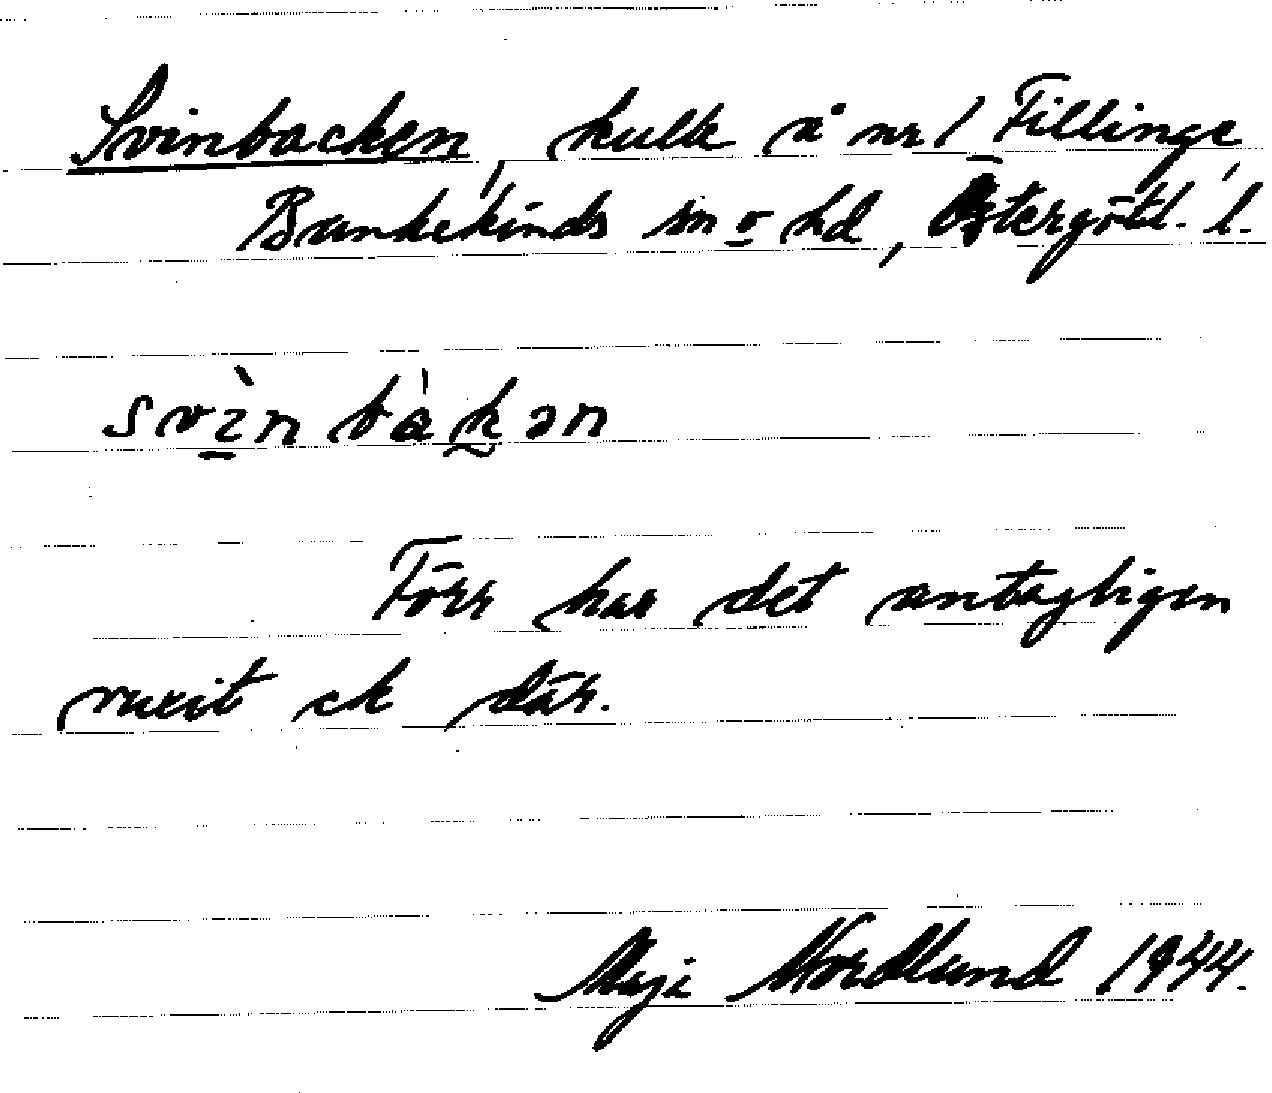 Svinbacken, kulle å nr 1 Fillinge,
Bankekinds sn o hd, Östergötl. l.
svìnbàkən
Förr har det antagligen
vuxit ek där.
Maji Nordlund 1944.